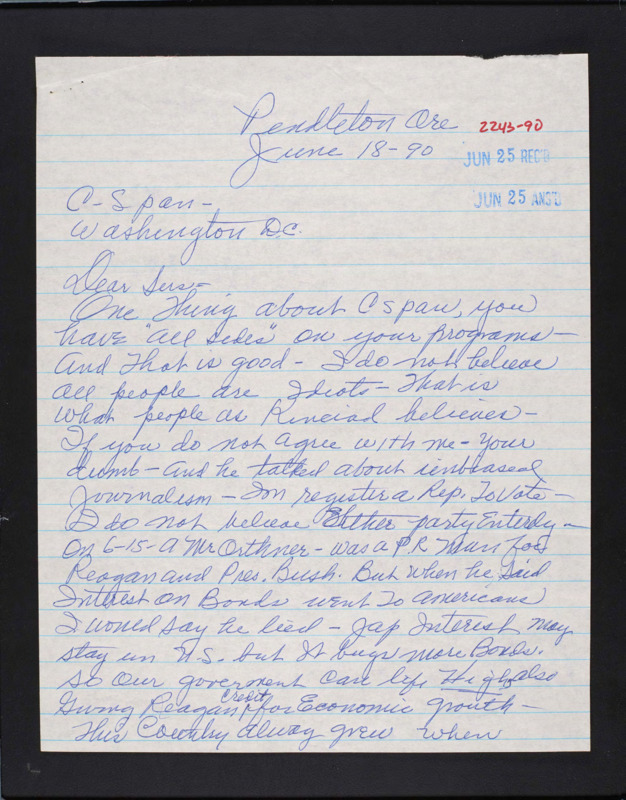 Pendleton Ore
2243-90
June 18-90
JUN 25 REC'D
JUN 25 ANS'D
C-Span-
Washington D.C.
Dear Sirs-
One Thing about C span, you
have "all sides" on your programs-
And That is good - I do not believe
all people are Idiots - That is
what people as Kinciad believes-
If you do not agree with me - your
dumb - and he talked about unbiased
Journalism - Im register a Rep. To Vote-
I do not believe Either party Enterly-
On 6-15- A Mr Orthner - was a P R Man for
Reagan and Pres. Bush. But when he said
Interest on Bonds went To americans
I would say he lied - Jap Interest may
stay in U.S. but It buys more Bonds.
So Our goverment can live High, also
Giving Reagan Credit for Economic growth-
This Country alway grew when